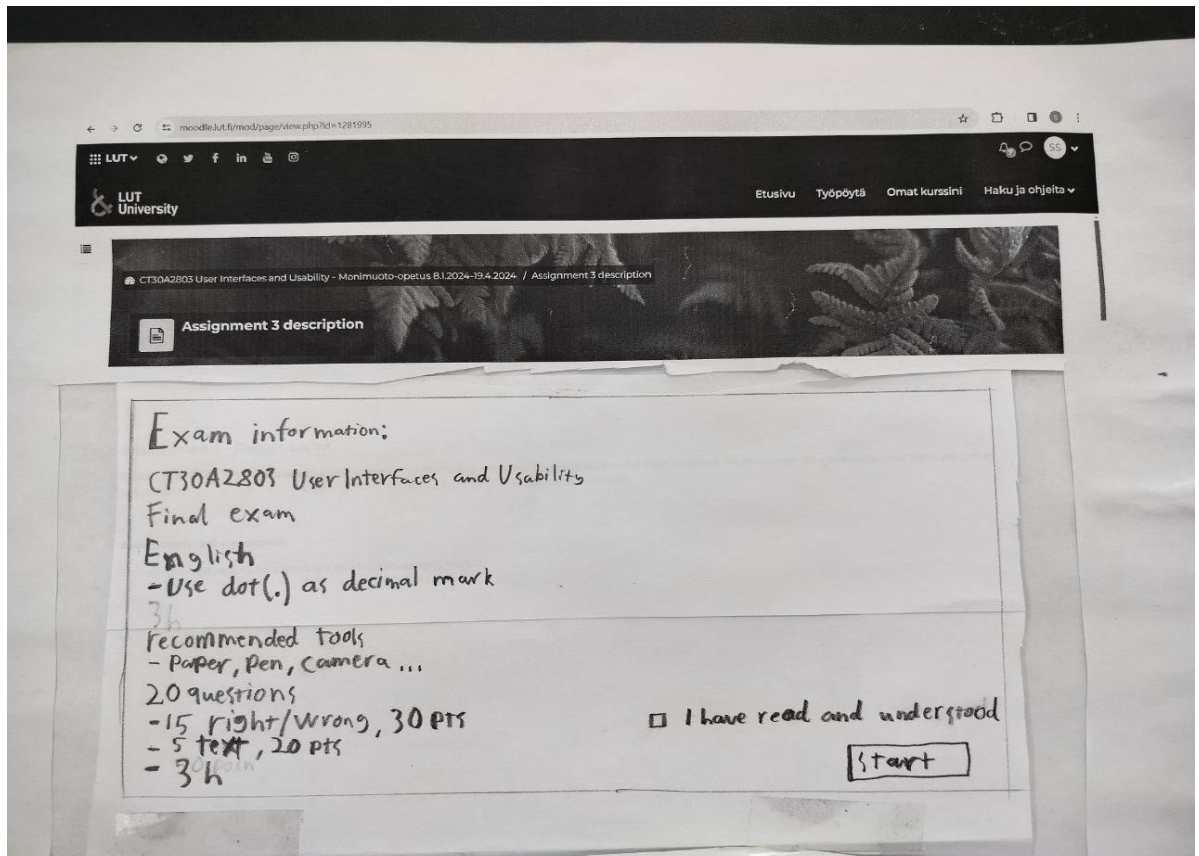 moodle.lut.fi/mod/page/view.php?id=1281995
LUT
SS
LUT
University
Etusivu Työpöytä Omat kurssini Haku ja ohjeita
CT30A2803 User Interfaces and Usability - Monimuoto-opetus 8.1.2024-19.4.2024 / Assignment 3 description
Assignment 3 description
Exam information:
CT30A2803 User Interfaces and Usability
Final exam
English
- Use dot(.) as decimal mark
3h
recommended tools
- Paper, Pen, Camera ...
20 questions
- 15 right/wrong, 30 pts
- 5 text, 20 pts
- 3h
I have read and understood
Start